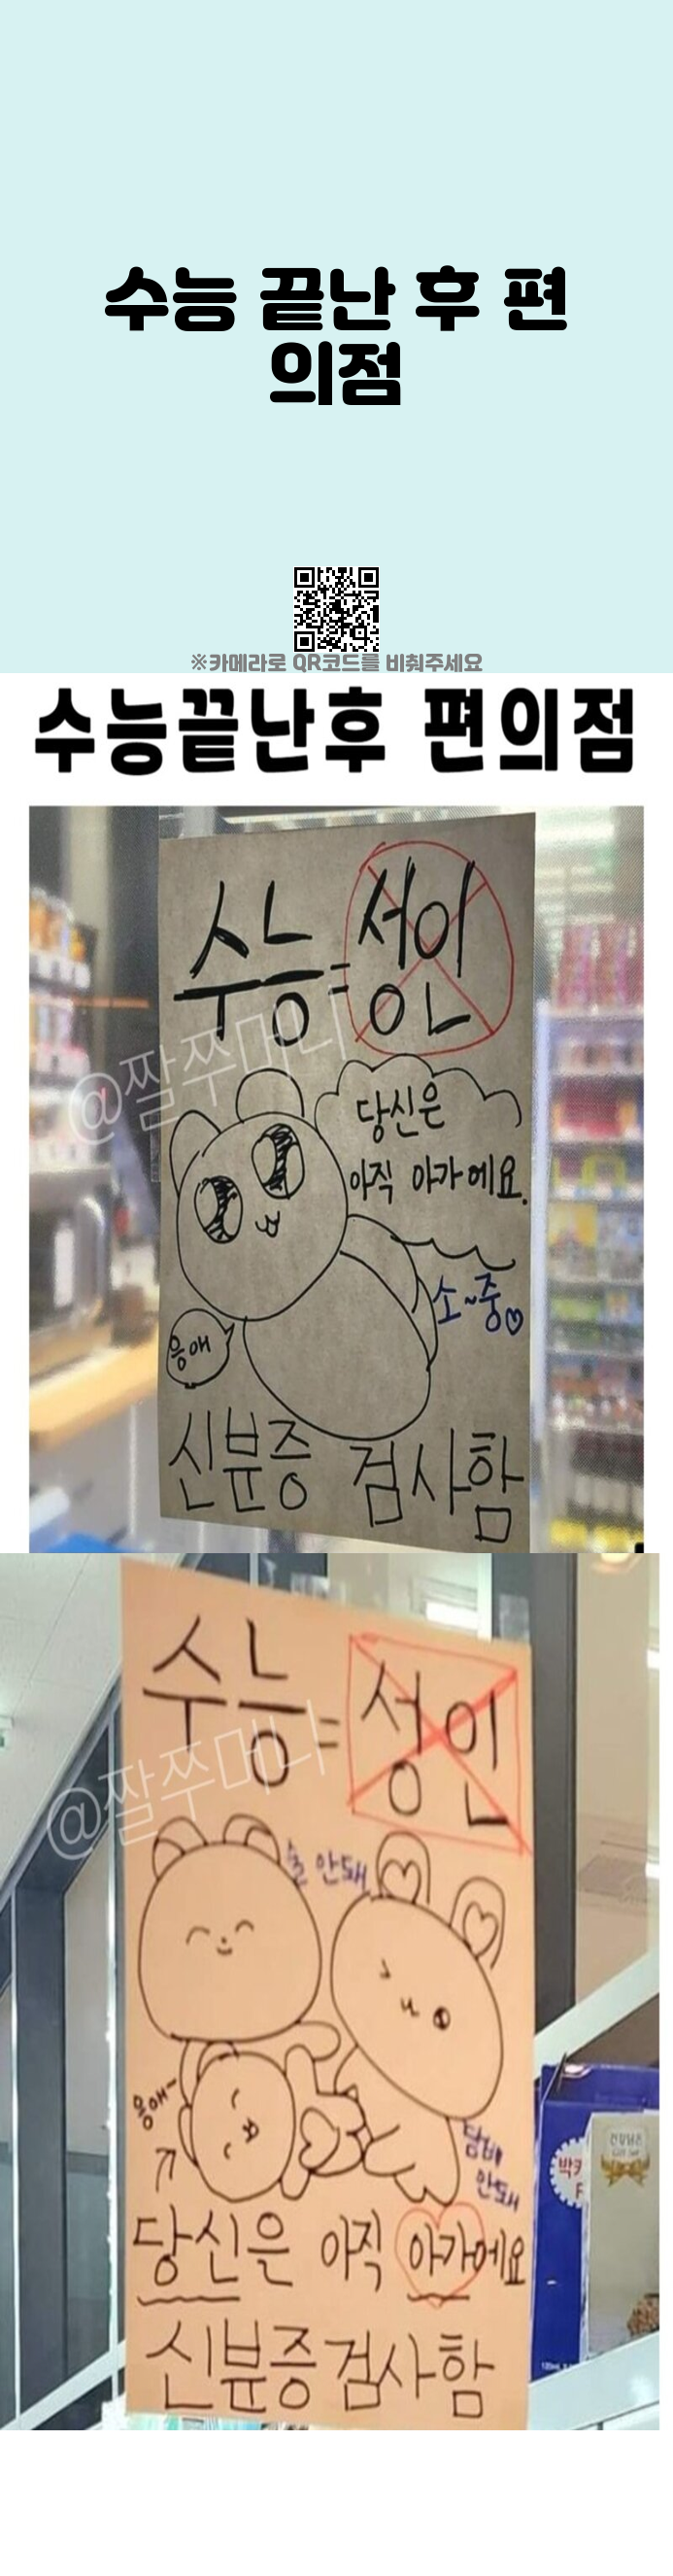 수능 끝난 후 편
의점
※카메라로 QR코드를 비춰주세요
수능끝난후 편의점
수능=성인
@짤쭈머니
당신은
아직 아가에요.
소~중♡
응애
신분증 검사함
수능=성인
@짤쭈머니
술 안돼
응애~
담배
안돼
당신은 아직 아가에요
신분증검사함